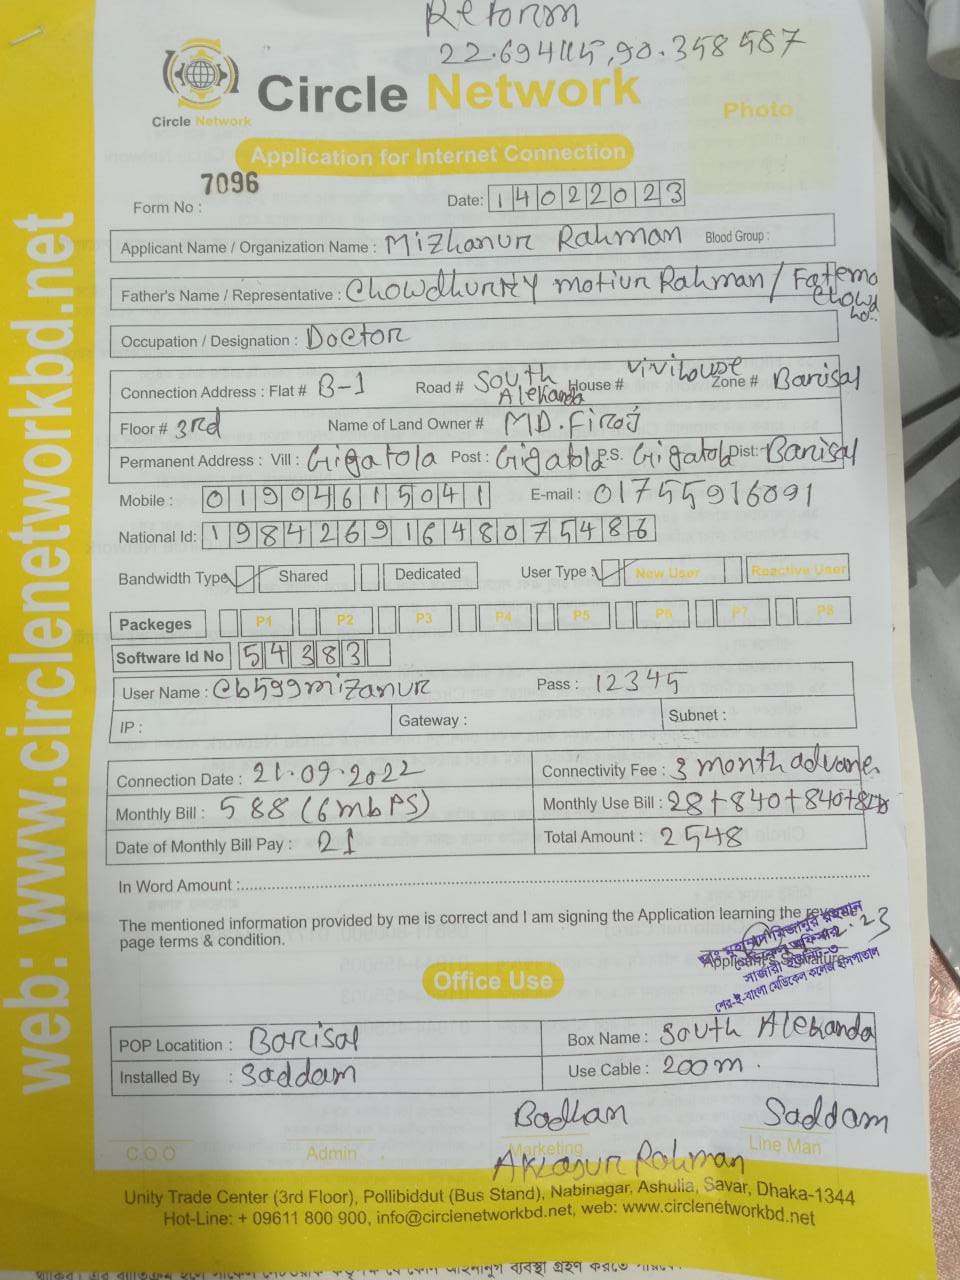 Reform
22.694115,90.358587
Circle Network
Circle Network
Photo
Application for Internet Connection
7096
Form No :
Date: 14022023
Applicant Name / Organization Name : Mizhanur Rahman Blood Group :
Father's Name / Representative : Chowdhurky motiur Rahman / Fatema
Occupation / Designation : Doctor
Connection Address : Flat # B-1 Road # South Alekanda House # vivihouse Zone # Barisal
Floor # 3rd Name of Land Owner # MD. Firoj
Permanent Address : Vill : Gigatola Post : Gigatola P.S. Gigatola Dist:- Barisal
Mobile : 01904615041 E-mail : 01755916091
National Id: 19842691648075486
Bandwidth Type Shared Dedicated User Type : New User Reactive User
Packeges P1 P2 P3 P4 P5 P6 P7 P8
Software Id No 54383
User Name : cb599mizanur Pass : 12345
IP : Gateway : Subnet :
Connection Date : 21.09.2022 Connectivity Fee : 3 month advance
Monthly Bill : 588 (6mbPS) Monthly Use Bill : 28+840+840+840
Date of Monthly Bill Pay : 21 Total Amount : 2548
In Word Amount :
The mentioned information provided by me is correct and I am signing the Application learning the reverse
page terms & condition.
ডাঃ মুহাম্মাদ মিজানুর রহমান
Applicant's Signature
শের-ই-বাংলা মেডিকেল কলেজ হাসপাতাল
Office Use
POP Locatition : Barisal Box Name : South Alekanda
Installed By : Saddam Use Cable : 200m.
Badhan Saddam
C.O.O Admin Marketing Line Man
Aklasur Rahman
Unity Trade Center (3rd Floor), Pollibiddut (Bus Stand), Nabinagar, Ashulia, Savar, Dhaka-1344
Hot-Line: + 09611 800 900, info@circlenetworkbd.net, web: www.circlenetworkbd.net
web: www.circlenetworkbd.net